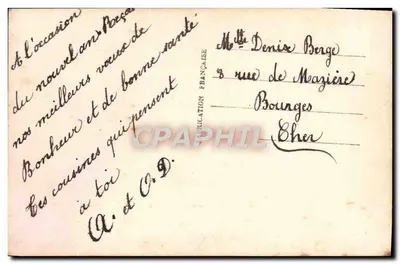 A l'occasion
du nouvel an Reçois
nos meilleurs vœux de
Bonheur et de bonne santé
Tes cousines qui pensent
à toi
A. et O. D.
FABRICATION FRANÇAISE
Mlle Denise Berge
8 rue de Mazière
Bourges
Cher
CPAPHIL